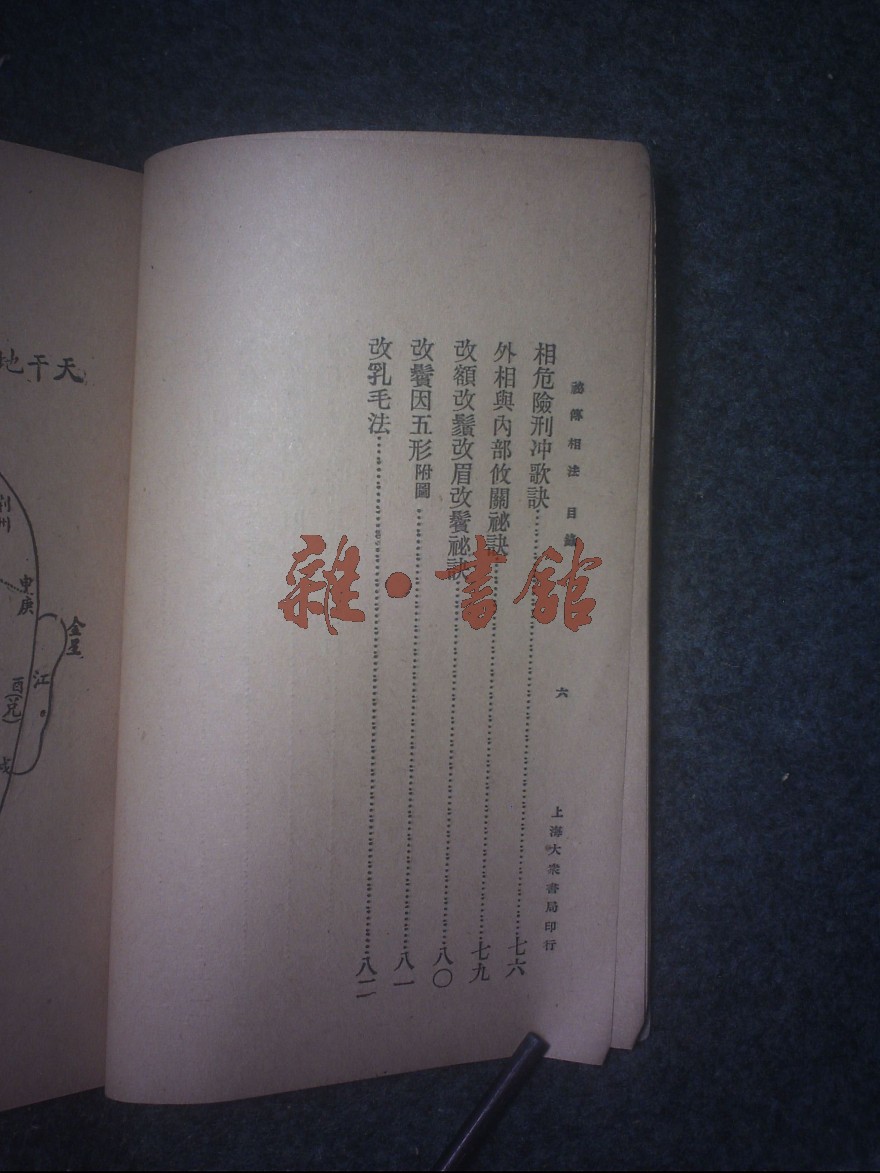 祕傳相法 目錄
六
上海大衆書局印行
相危險刑冲歌訣……七六
外相與內部攸關祕訣……七九
改額改鬚改眉改鬢祕訣……八〇
改鬢因五形附圖……八一
改乳毛法……八二
雜·書館
天干地
荆州
庚
金星
江
酉(兌)